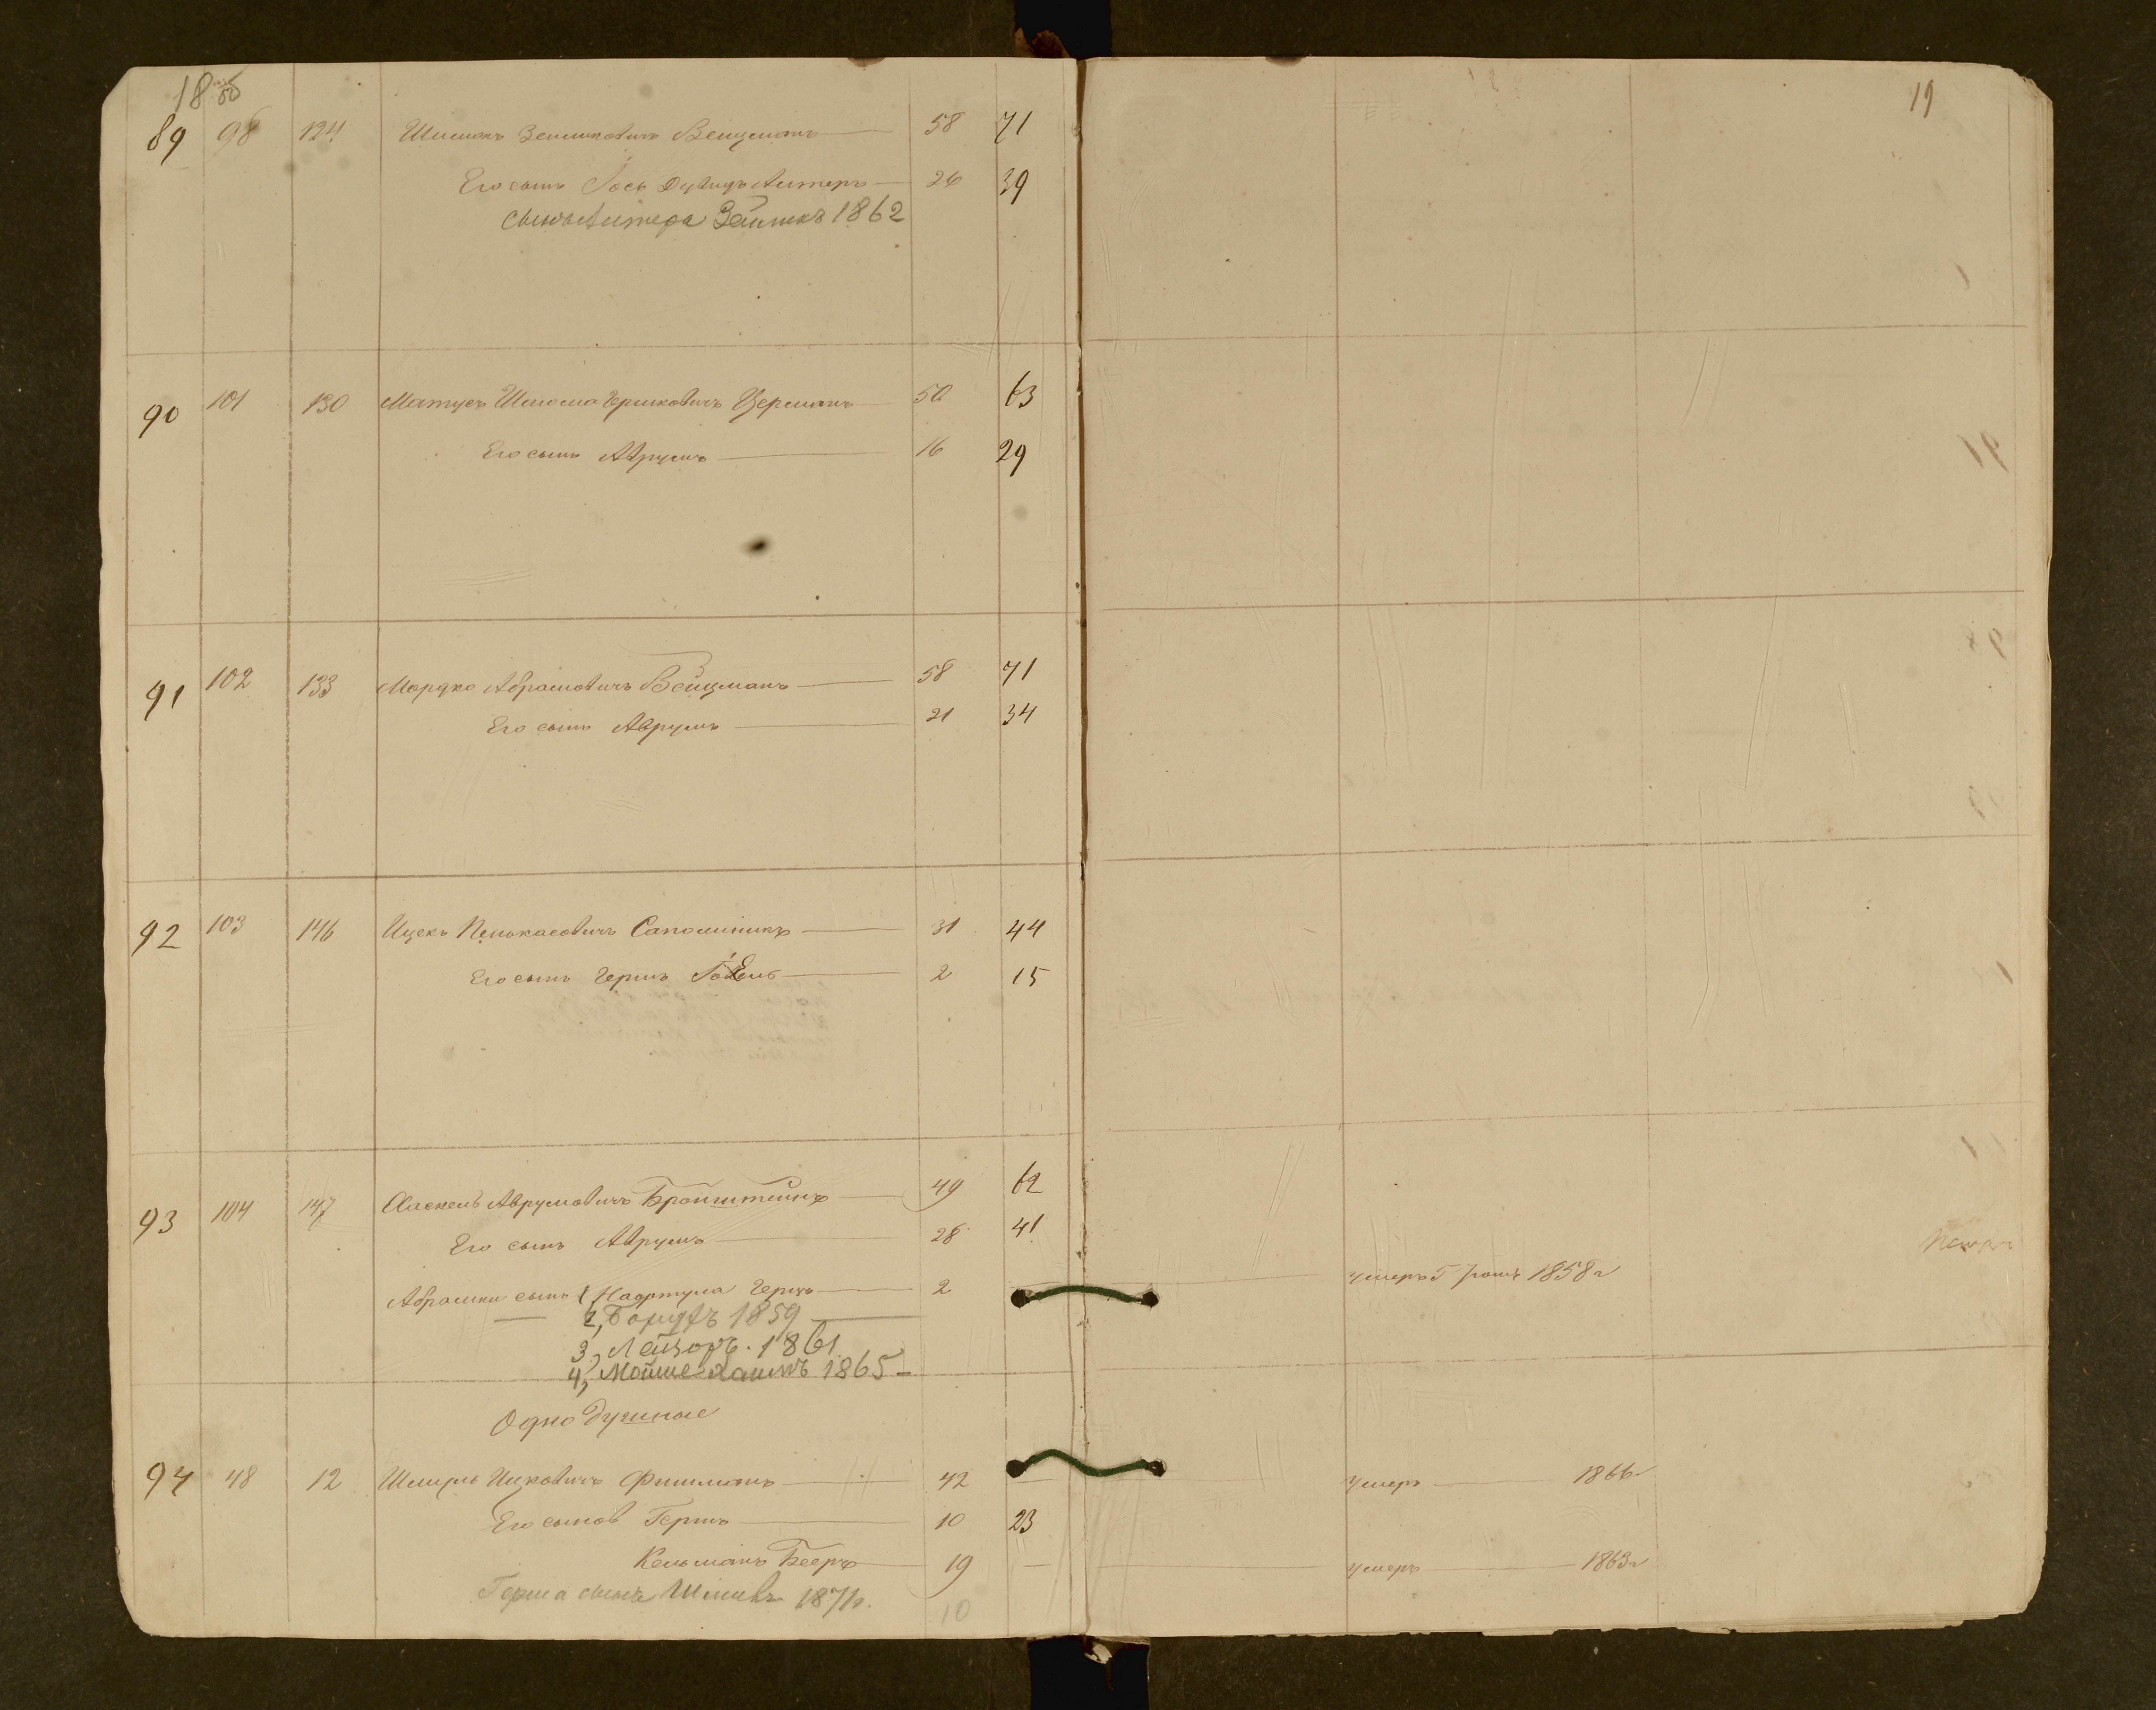 18
89 98 124 Шимонъ Зельмановичъ Вейцманъ 58 71
Его сынъ Іось Дувидъ Алтеръ 26 39
сынъ Алтера Зельманъ 1862
90 101 130 Матусъ Шлома Гершковичъ Церманъ 50 63
Его сынъ Аврумъ 16 29
91 102 133 Мордко Абрамовичъ Вейцманъ 58 71
Его сынъ Аврумъ 21 34
92 103 146 Ицекъ Пинькасовичъ Сапожникъ 31 44
Его сынъ Герш 2 15
93 104 147 Хаскель Аврумовичъ Бронштейнъ 49 62
Его сынъ Аврумъ 28 41
Абрамки сынъ 1, Нафтула Герцъ 2
2, Борухъ 1859
3, Лейзоръ. 1861
4, Мойше Хаимъ 1865
Одно душные
94 48 12 Шмуль Ицковичъ Фишманъ 42
Его сынов Герш 10 23
Кельманъ Беръ 19
Герша сынъ 1871г. 10
19
умеръ 5 1858 г
умеръ 1866 г
умеръ 1863 г